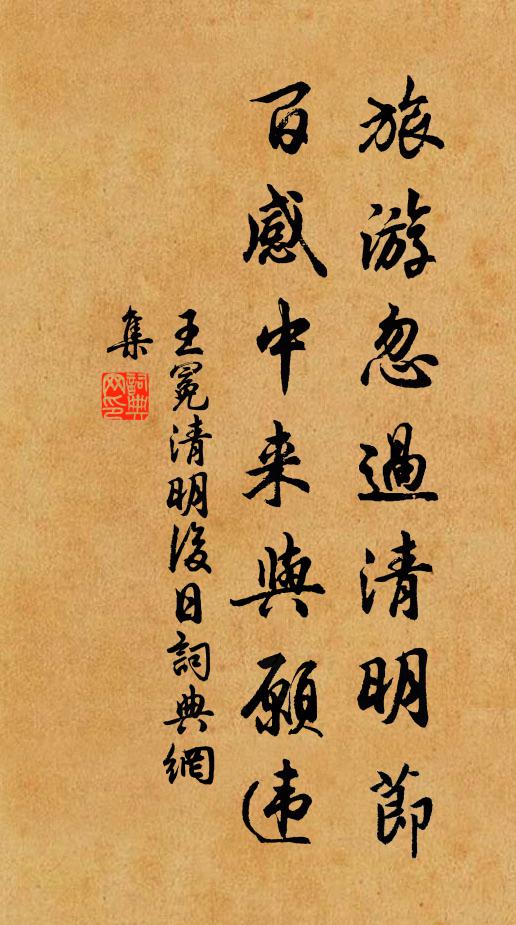 旅游忽過清明節
百感中来與願违
王冕清明後日詞典網
集
詞典網印